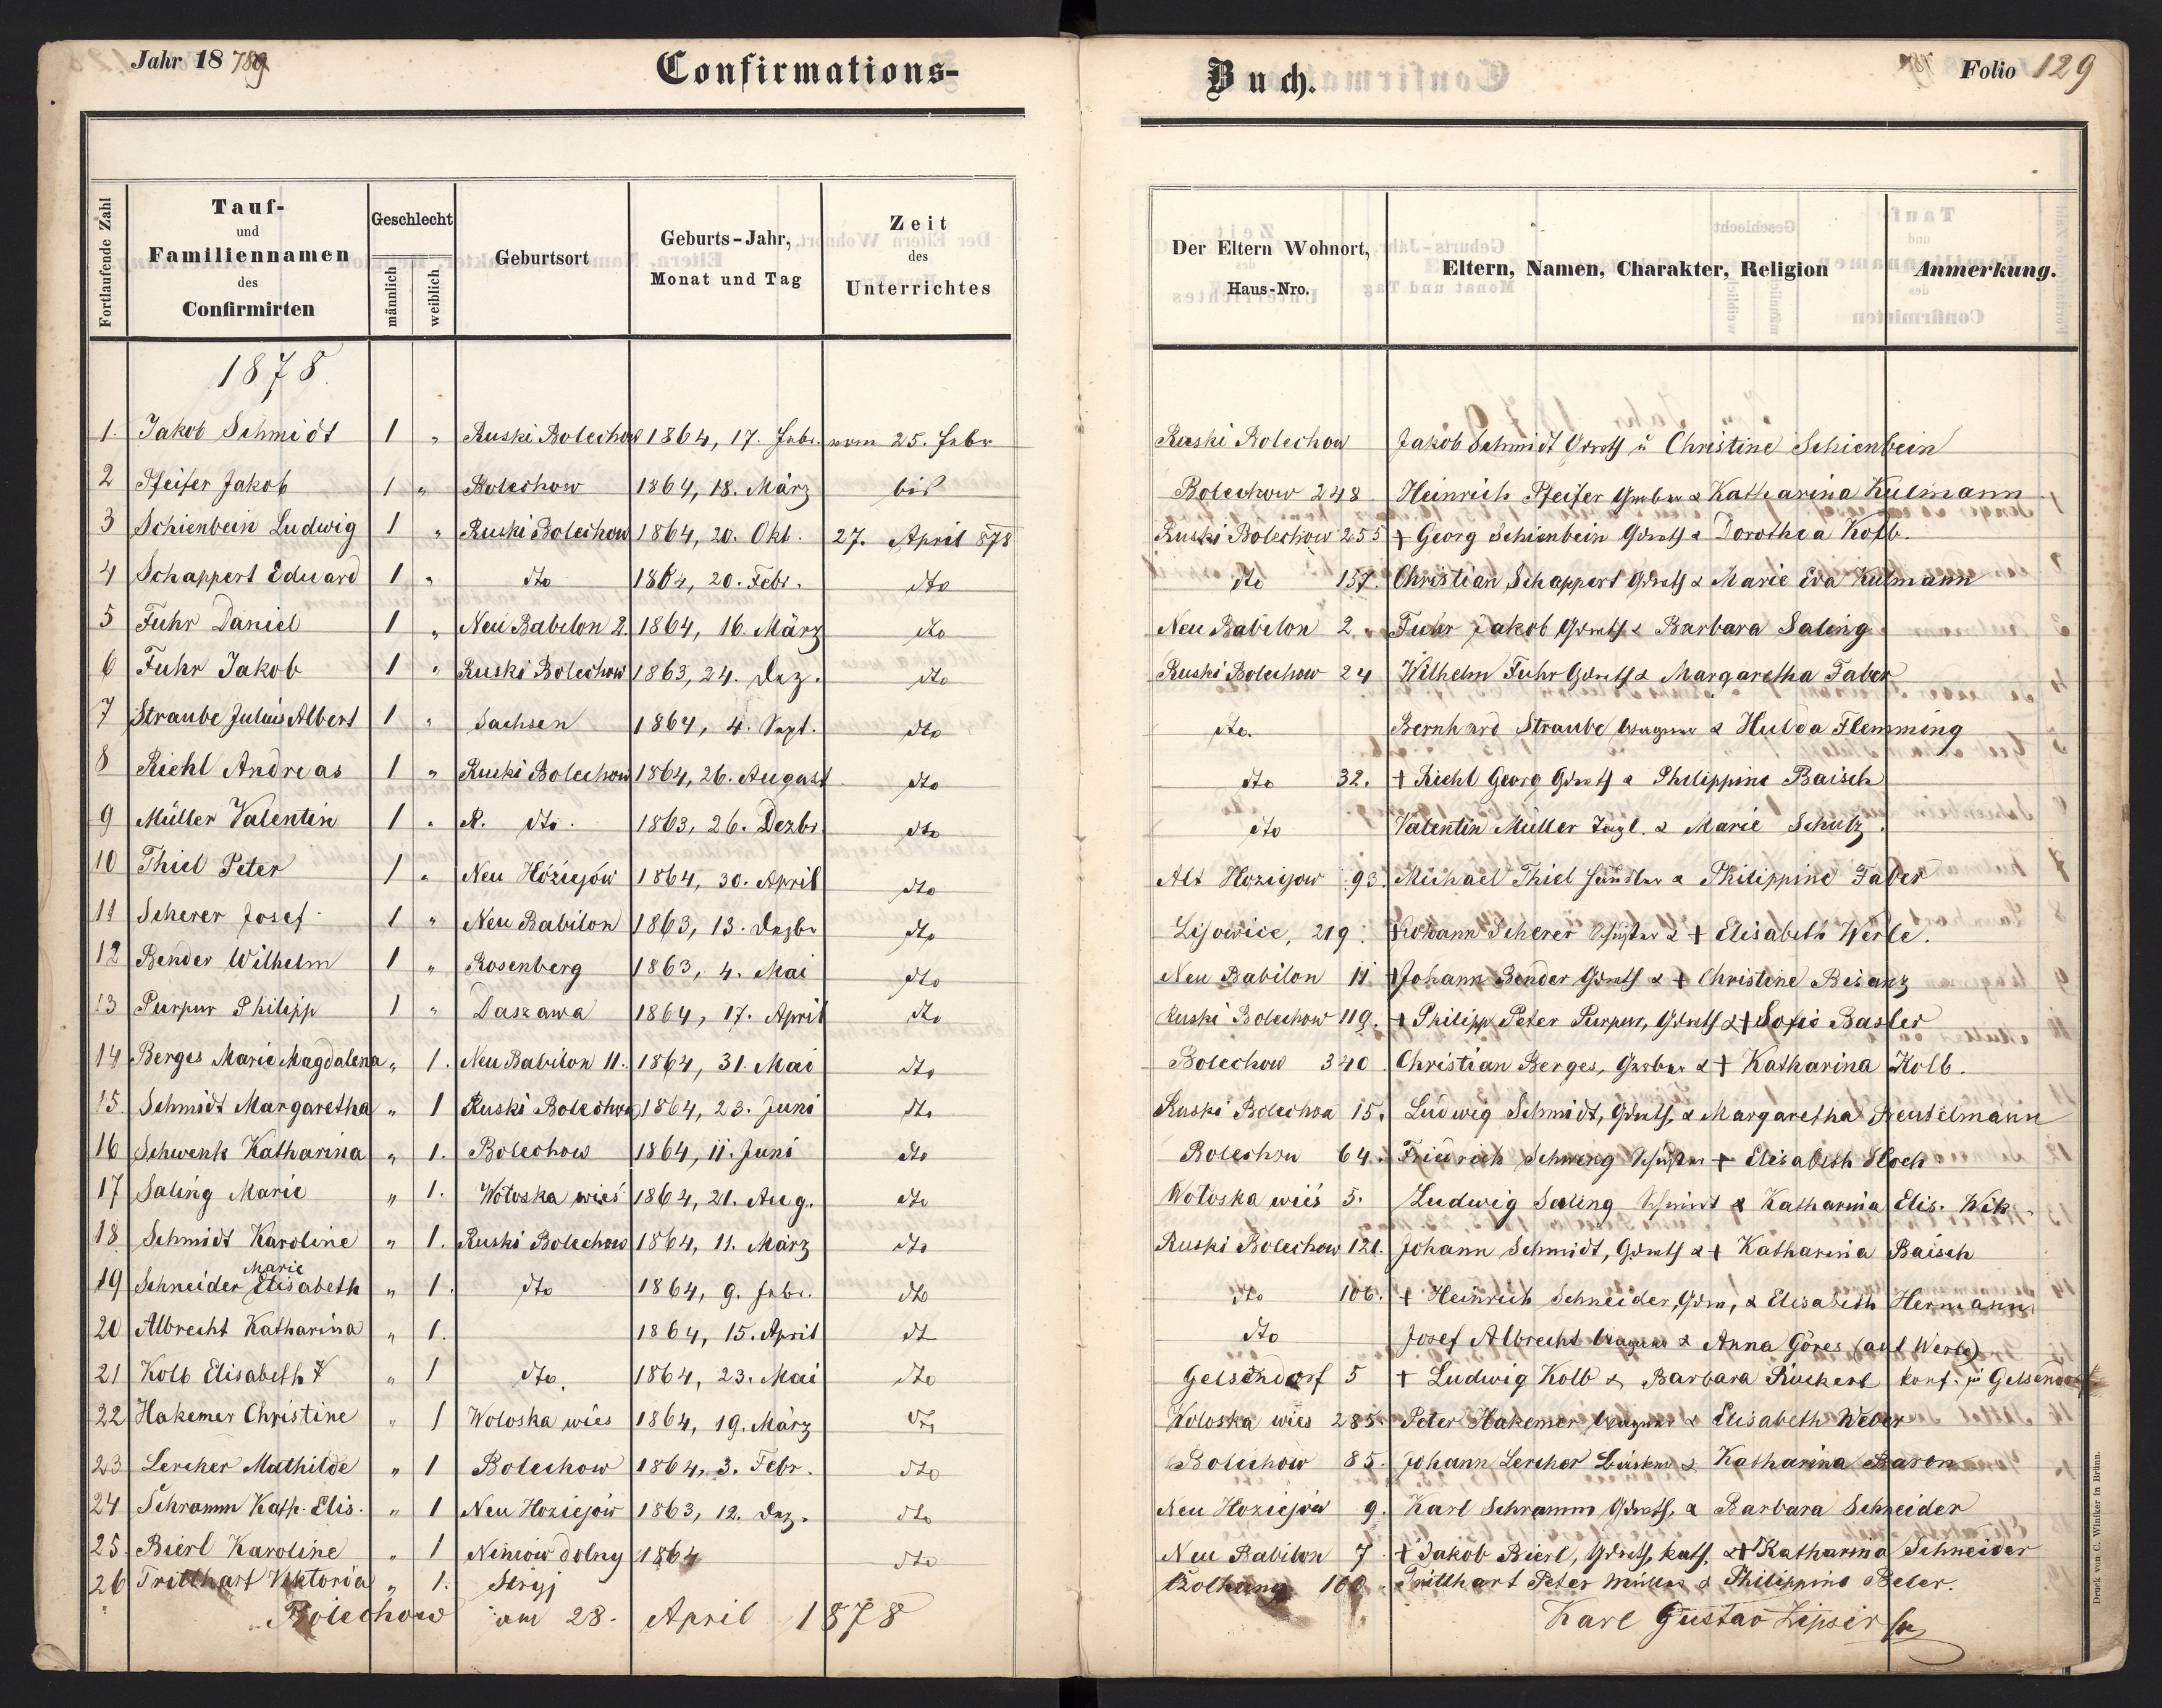 Jahr 18 789
Confirmations-
Buch.
Folio 129
Fortlaufende Zahl
Tauf-
und
Familiennamen
des
Confirmirten
Geschlecht
männlich
weiblich
Geburtsort
Geburts-Jahr,
Monat und Tag
Zeit
des
Unterrichtes
Der Eltern Wohnort,
Haus-Nro.
Eltern, Namen, Charakter, Religion
Anmerkung.
1878.
1. Jakob Schmidt 1 " Ruski Bolechow 1864, 17. Febr. vom 25. Febr Ruski Bolechow Jakob Schmidt Grdw u Christine Schienbein
2 Pfeifer Jakob 1 " Bolechow 1864, 18. März bis Bolechow 248 Heinrich Pfeifer Gerber & Katharina Kulmann
3 Schienbein Ludwig 1 " Ruski Bolechow 1864, 20. Okt. 27. April 878 Ruski Bolechow 255 + Georg Schienbein & Dorothea Kolb.
4 Schappert Eduard 1 " dto 1864, 20. Febr. dto dto 157. Christian Schappert & Marie Eva Kulmann
5 Fuhr Daniel 1 " Neu Babilon 2. 1864, 16. März dto Neu Babilon 2. Fuhr Jakob & Barbara Saling
6 Fuhr Jakob 1 " Ruski Bolechow 1863, 24. Dez. dto Ruski Bolechow 24 Wilhelm Fuhr & Margaretha Faber
7 Straube Julius Albert 1 " Sachsen 1864, 4. Sept. dto dto. Bernhard Straube Wagner & Hulda Flemming
8 Riehl Andreas 1 " Ruski Bolechow 1864, 26. August dto dto 32. + Riehl Georg & Philippine Baisch
9 Müller Valentin 1 " R. dto. 1863, 26. Dezbr dto dto Valentin Müller Tagl. & Marie Schulz.
10 Thiel Peter 1 " Neu Hóziejów 1864, 30. April dto Alt Hoziejow 93. Michael Thiel Händler & Philippine Faber
11 Scherer Josef 1 " Neu Babilon 1863, 13. Dezbr dto Lisowice, 219. + Johann Scherer Schuster & + Elisabeth Werle.
12 Bender Wilhelm 1 " Rosenberg 1863, 4. Mai dto Neu Babilon 11 + Johann Bender & + Christine Bisanz
13 Purpur Philipp 1 " Daszawa 1864, 17. April dto Ruski Bolechow 119. + Philipp Peter Purpur, & + Sofie Basler
14 Berges Marie Magdalena " 1. Neu Babilon 11. 1864, 31. Mai dto Bolechow 340. Christian Berges, Gerber & + Katharina Kolb.
15. Schmidt Margaretha " 1 Ruski Bolechow 1864, 23. Juni dto Ruski Bolechow 15. Ludwig Schmidt, & Margaretha Beutelmann
16 Schwenk Katharina " 1. Bolechow 1864, 11. Juni dto Bolechow 64. Friedrich Schweng Schuster + Elisabeth Hoch
17 Saling Marie " 1. Wołoska wieś 1864, 21. Aug. dto Wołoska wieś 5. Ludwig Saling Schmidt & Katharina Elis. Wik
18 Schmidt Karoline " 1. Ruski Bolechow 1864, 11. März dto Ruski Bolechow 121. Johann Schmidt, & + Katharina Baisch
19 Schneider Marie Elisabeth " 1. dto 1864, 9. Febr. dto dto 106. + Heinrich Schneider, & Elisabeth Hermann
20 Albrecht Katharina " 1. 1864, 15. April dt dto Josef Albrecht Wagner & Anna Göres (aut Werle)
21 Kolb Elisabeth " 1 dto. 1864, 23. Mai dto Gelsendorf 5 + Ludwig Kolb & Barbara Rückert konf. in Gelsendorf
22 Hakemer Christine " 1 Woloska wies 1864, 19. März dto Woloska wies 285. Peter Hakemer Wagner & Elisabeth Weber
23 Lercher Mathilde " 1 Bolechow 1864, 3. Febr. dto Bolechow 85. Johann Lercher & Katharina Baron
24 Schramm Kath. Elis. " 1 Neu Hoziejów 1863, 12. Dez. dto Neu Hoziejów 9. Karl Schramm & Barbara Schneider
25. Bierl Karoline " 1 Niniow dolny 1864 dto Neu Babilon 7. + Jakob Bierl, kath. & + Katharina Schneider
26 Tritthart Viktoria " 1. Stryj 100. Tritthart Peter Müller & Philippine Beler.
Bolechow am 28. April 1878
Karl Gustav Zipser
Druck von C. Winiker in Brünn.